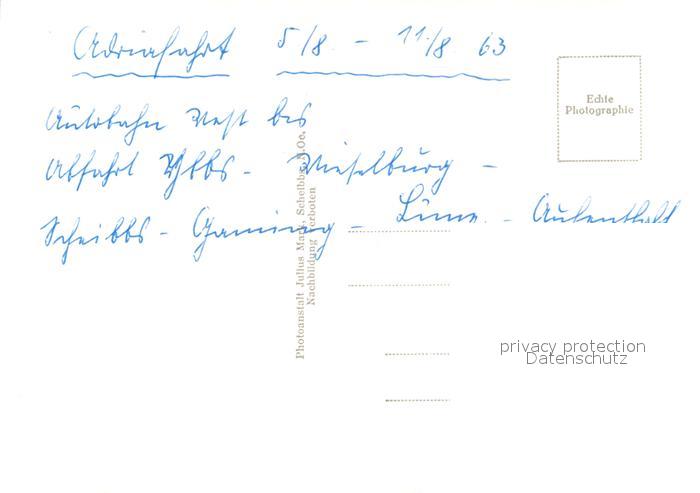 Adriafahrt 5/8. - 11/8 63
Autobahn West bis
Abfahrt Ybbs - Wieselburg -
Scheibbs - Gaming - Lunz - Aufenthalt
Echte
Photographie
Photoanstalt Julius Scheibbs, N.Oe.
Nachbildung verboten
privacy protection
Datenschutz